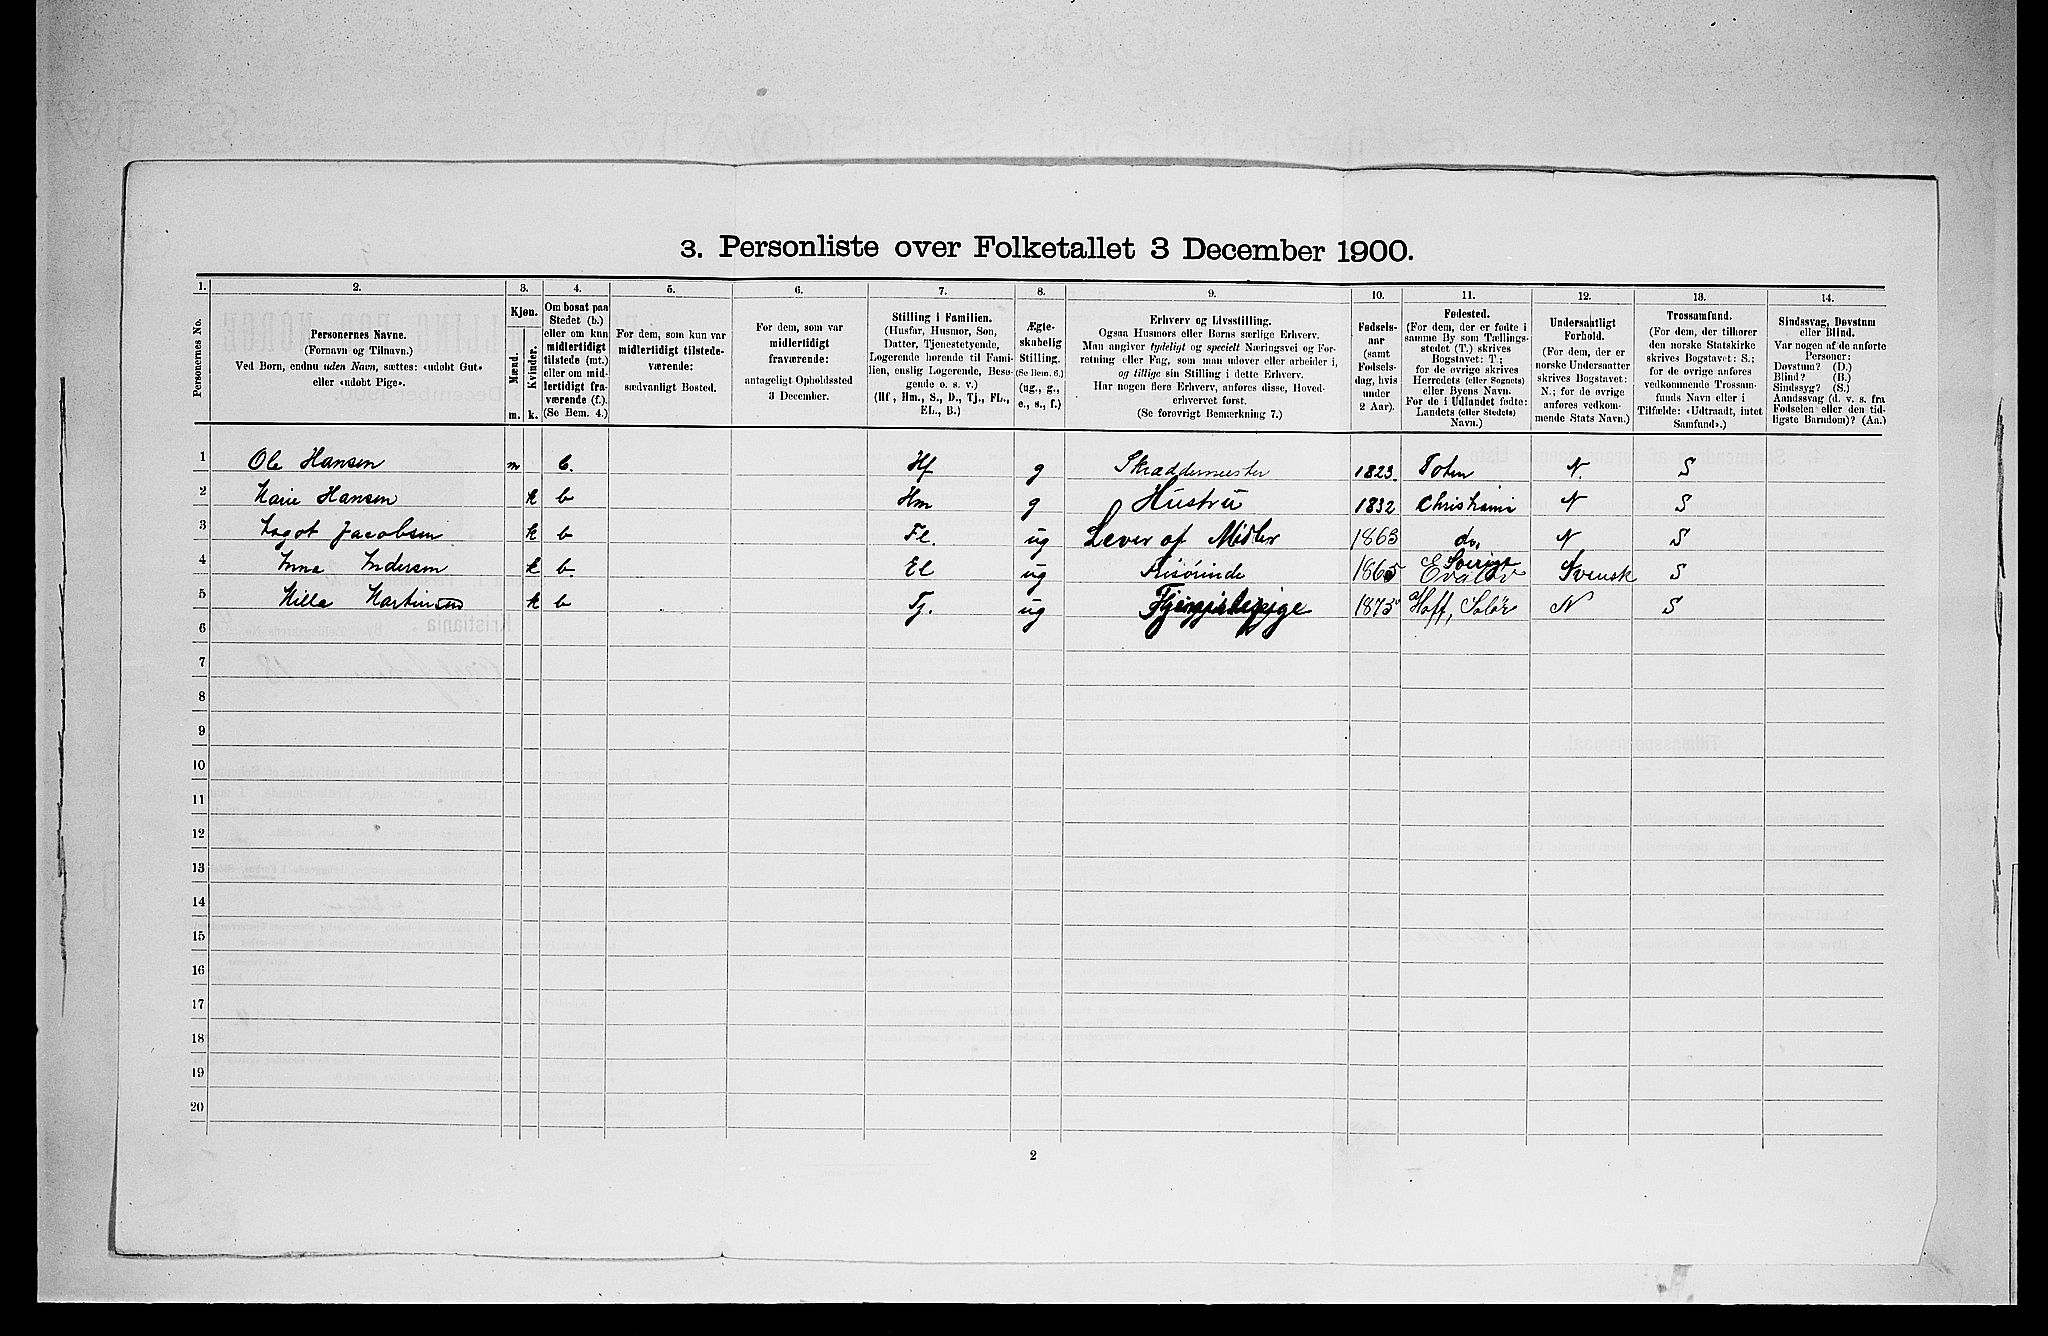 3. Personliste over Folketallet 3 December 1900.
1. 2. 3. 4. 5. 6. 7. 8. 9. 10. 11. 12. 13. 14.
Personernes No.
Personernes Navne.
(Fornavn og Tilnavn.)
Ved Børn, endnu uden Navn, sættes: «udøbt Gut»
eller «udøbt Pige».
Kjøn.
Mænd. Kvinder.
m. k.
Om bosat paa
Stedet (b.)
eller om kun
midlertidigt
tilstede (mt.)
eller om mid-
lertidigt fra-
værende (f.).
(Se Bem. 4.)
For dem, som kun var
midlertidigt tilstede-
værende:
sædvanligt Bosted.
For dem, som var
midlertidigt
fraværende:
antageligt Opholdssted
3 December.
Stilling i Familien.
(Husfar, Husmor, Søn,
Datter, Tjenestetyende,
Logerende hørende til Fami-
lien, enslig Logerende, Besø-
gende o. s. v.)
(Hf., Hm., S., D., Tj., FL.,
EL., B.)
Ægte-
skabelig
Stilling.
(Se Bem. 6.)
(ug., g.,
e., s., f.)
Erhverv og Livsstilling.
Ogsaa Husmors eller Børns særlige Erhverv.
Man angiver tydeligt og specielt Næringsvei og For-
retning eller Fag, som man udøver eller arbeider i,
og tillige sin Stilling i dette Erhverv.
Har nogen flere Erhverv, anføres disse, Hoved-
erhvervet først.
(Se forøvrigt Bemerkning 7.)
Fødsels-
aar
(samt
Fødsels-
dag, hvis
under
2 Aar).
Fødested.
(For dem, der er fødte i
samme By som Tællings-
stedet (T.) skrives
Bogstavet: T.;
for de øvrige skrives
Herredets (eller Sognets)
eller Byens Navn.
For de i Udlandet fødte:
Landets (eller Stedets)
Navn.)
Undersaatligt
Forhold.
(For dem, der er
norske Undersaatter
skrives Bogstavet:
N.; for de øvrige
anføres vedkom-
mende Stats Navn.)
Trossamfund.
(For dem, der tilhører
den norske Statskirke
skrives Bogstavet: S.;
for de øvrige anføres
vedkommende Trossam-
funds Navn eller i
Tilfælde: «Udtraadt, intet
Samfund».)
Sindssvag, Døvstum
eller Blind.
Var nogen af de anførte
Personer:
Døvstum? (D.)
Blind? (B.)
Sindssyg? (S.)
Aandssvag (d. v. s. fra
Fødselen eller den tid-
ligste Barndom)? (Aa.)
1 Ole Hansen m b. Hf g Skræddermester 1823. Toten N. S
2 Marie Hansen k b Hm g Hustru 1832 Christiania N S
3 Jacobsen k b Fl. ug Lever af Midler 1863 do. N S
4 Anna Andersen k b. El ug 1865 Sverige Svensk S
5 Milla Martinsen k b Tj. ug 1873 Hoff, Solør N S
6
7
8
9
10
11
12
13
14
15
16
17
18
19
20
2